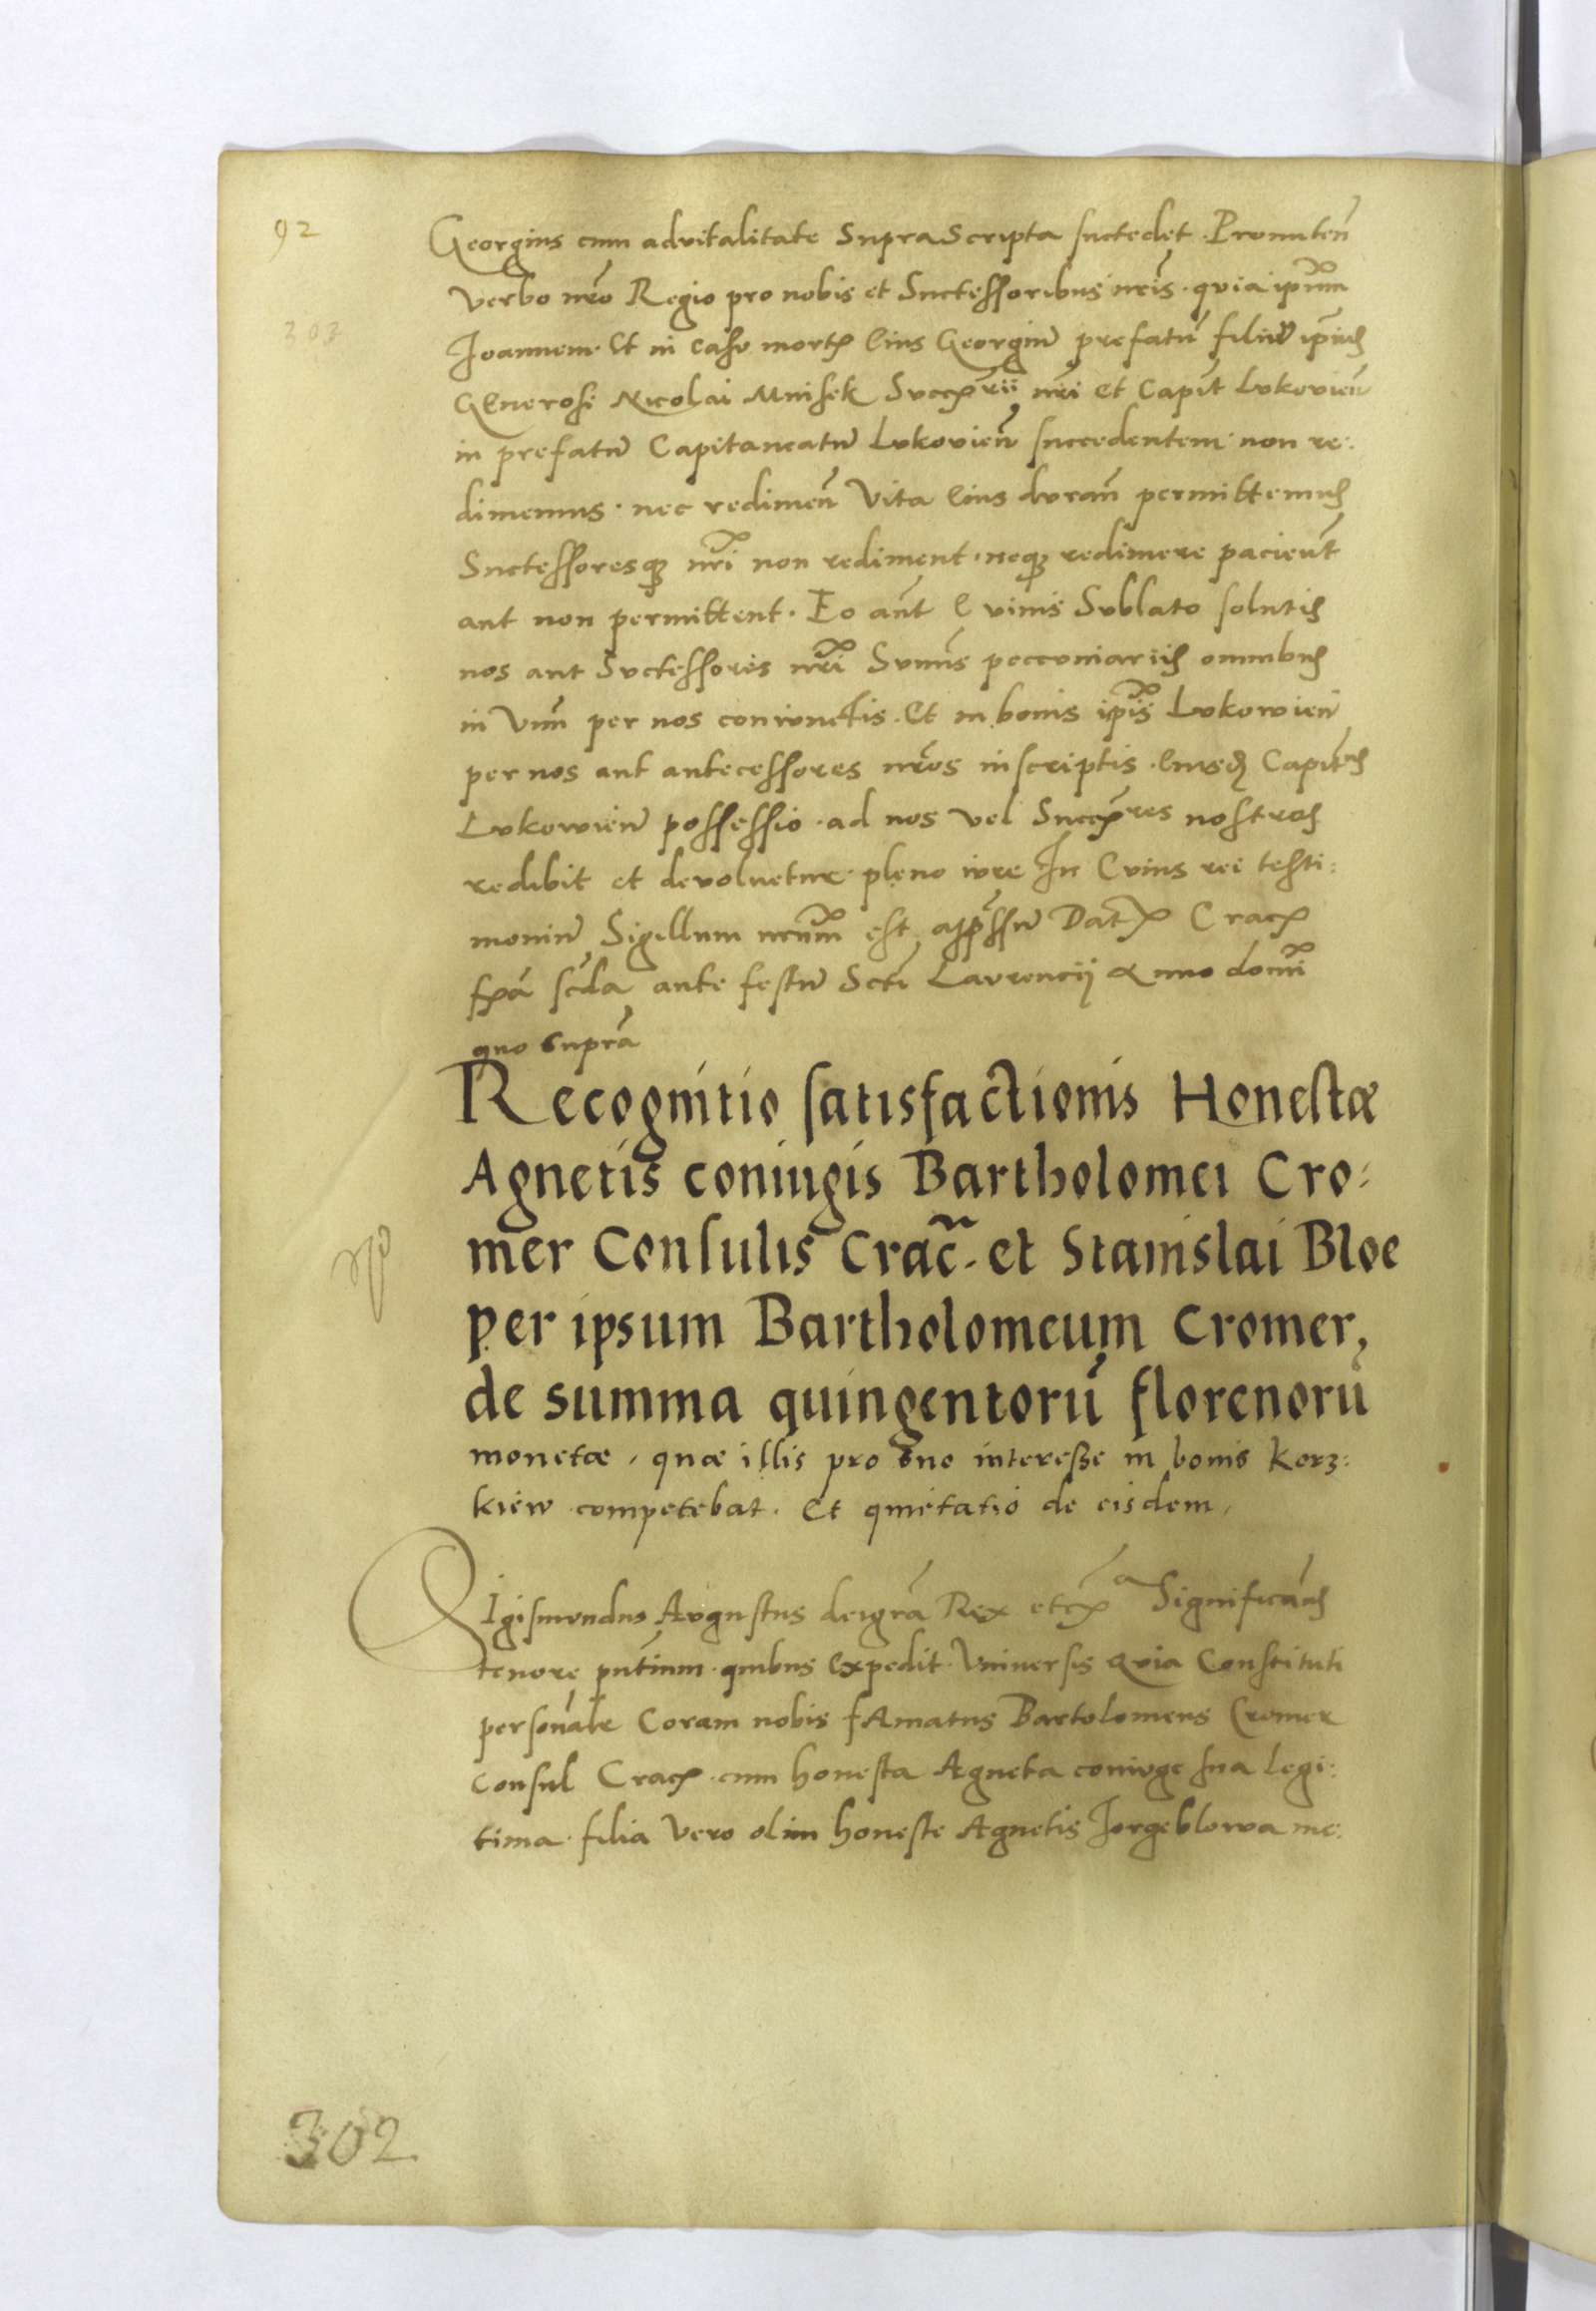 92
Georgius cum advitalitate SupraScripta suctedet. Promitteñ
verbo nr̃o Regio pro nobis et Suctessoribus nr̃is. quia ip̃um
Joannem. Et in casu mort̃ eius Georgiū prefatū filiū ip̃ius
Generosi Nicolai Mnisek Succ̃rii nr̃i et Capit̃ Lukovieñ
in prefatū Capitaneatū Lukovieñ succedentem non re:
dimemus. nec redimeñ Vita eius durañ permittemus
Suctessoresqꝫ nr̃i non rediment. neqꝫ redimere pacient̃
aut non permittent. Eo aũt e vivis Sublato solutis
nos aut Suctessores nr̃i Sum̃s peccuniariis omnibus
in Vnũ per nos coniunctis. Et in bonis ip̃is Lukowieñ
per nos aut antecessores nr̃os inscriptis. eiusd̃ Capit̃s
Lukowieñ possessio. ad nos vel Succ̃res nostros
redibit et devoluetur pleno iure In Cuius rei testi:
moniū Sigillum nr̃um est app̃ssū Dat̃ Crac̃
fr̃a sc̃da ante festū Sct̃i Laurencij Anno domĩ
quo supra
Recognitio satisfactionis Honestæ
Agnetis coniugis Bartholomei Cro:
mer Consulis Crac̃. et Stanislai Bloe
per ipsum Bartholomeum Cromer,
de summa quingentorū florenorū
monetæ, quæ illis pro suo interesse in bonis Korz:
kiew competebat. Et quietatio de eisdem,
Sigismundus Augustus dei gr̃a Rex etc̃ Significam̃s
tenore p̃ntium. quibus Expedit. Vniversis Quia Constituti
personal̃r Coram nobis fAmatus Bartolomeus Cromer
Consul Crac̃. cum honesta Agneta coniuge sua legi:
tima. filia vero olim honeste Agnetis Jorgeblowa me:
302